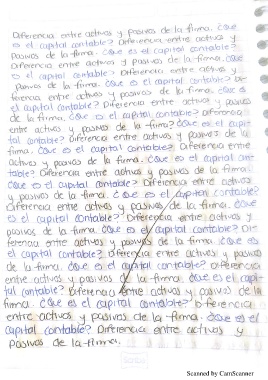 Diferencia entre activos y pasivos de la firma. ¿Que
es el capital contable? Diferencia entre activos y
pasivos de la firma. ¿Que es el capital contable?
Diferencia entre activos y pasivos de la firma. ¿Que
es el capital contable? Diferencia entre activos y
pasivos de la firma. ¿Que es el capital contable? Di-
ferencia entre activos y pasivos de la firma. ¿Que es
el capital contable? Diferencia entre activos y pasivos
de la firma. ¿Que es el capital contable? Diferencia
entre activos y pasivos de la firma? ¿Que es el capi-
tal contable? Diferencia entre activos y pasivos de la
firma. ¿Que es el capital contable? Diferencia entre
activos y pasivos de la firma. ¿Que es el capital con-
table? Diferencia entre activos y pasivos de la firma.
¿Que es el capital contable? Diferencia entre activos
y pasivos de la firma. ¿Que es el capital contable?
Diferencia entre activos y pasivos de la firma. ¿Que
es el capital contable? Diferencia entre activos y
pasivos de la firma. ¿Que es el capital contable? Di-
ferencia entre activos y pasivos de la firma. ¿Que es
el capital contable? Diferencia entre activos y pasivos
de la firma. ¿Que es el capital contable? Diferencia
entre activos y pasivos de la firma. ¿Que es el capi-
tal contable? Diferencia entre activos y pasivos de la
firma. ¿Que es el capital contable? Diferencia
entre activos y pasivos de la firma. ¿Que es el
capital contable? Diferencia entre activos y
pasivos de la firma.
Scanned by CamScanner